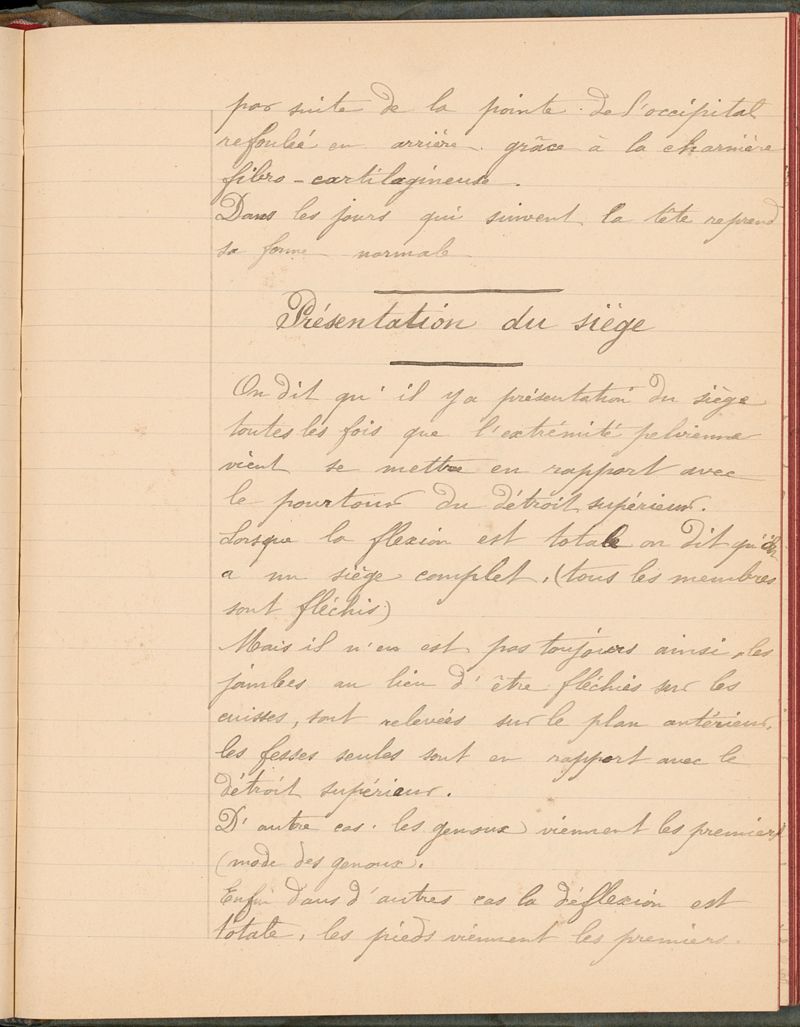 par suite de la pointe de l'occipital
refoulée en arrière grâce à la charnière
fibro-cartilagineuse.
Dans les jours qui suivent la tête reprend
sa forme normale
Présentation du siège
On dit qu'il y a présentation du siège
toutes les fois que l'extrémité pelvienne
vient se mettre en rapport avec
le pourtour du détroit supérieur.
Lorsque la flexion est totale on dit qu'on
a un siège complet, (tous les membres
sont fléchis)
Mais il n'en est pas toujours ainsi, les
jambes au lieu d'être fléchies sur les
cuisses, sont relevées sur le plan antérieur,
les fesses seules sont en rapport avec le
détroit supérieur.
D'autre cas. les genoux viennent les premiers
(mode des genoux.
Enfin dans d'autres cas la déflexion est
totale, les pieds viennent les premiers.